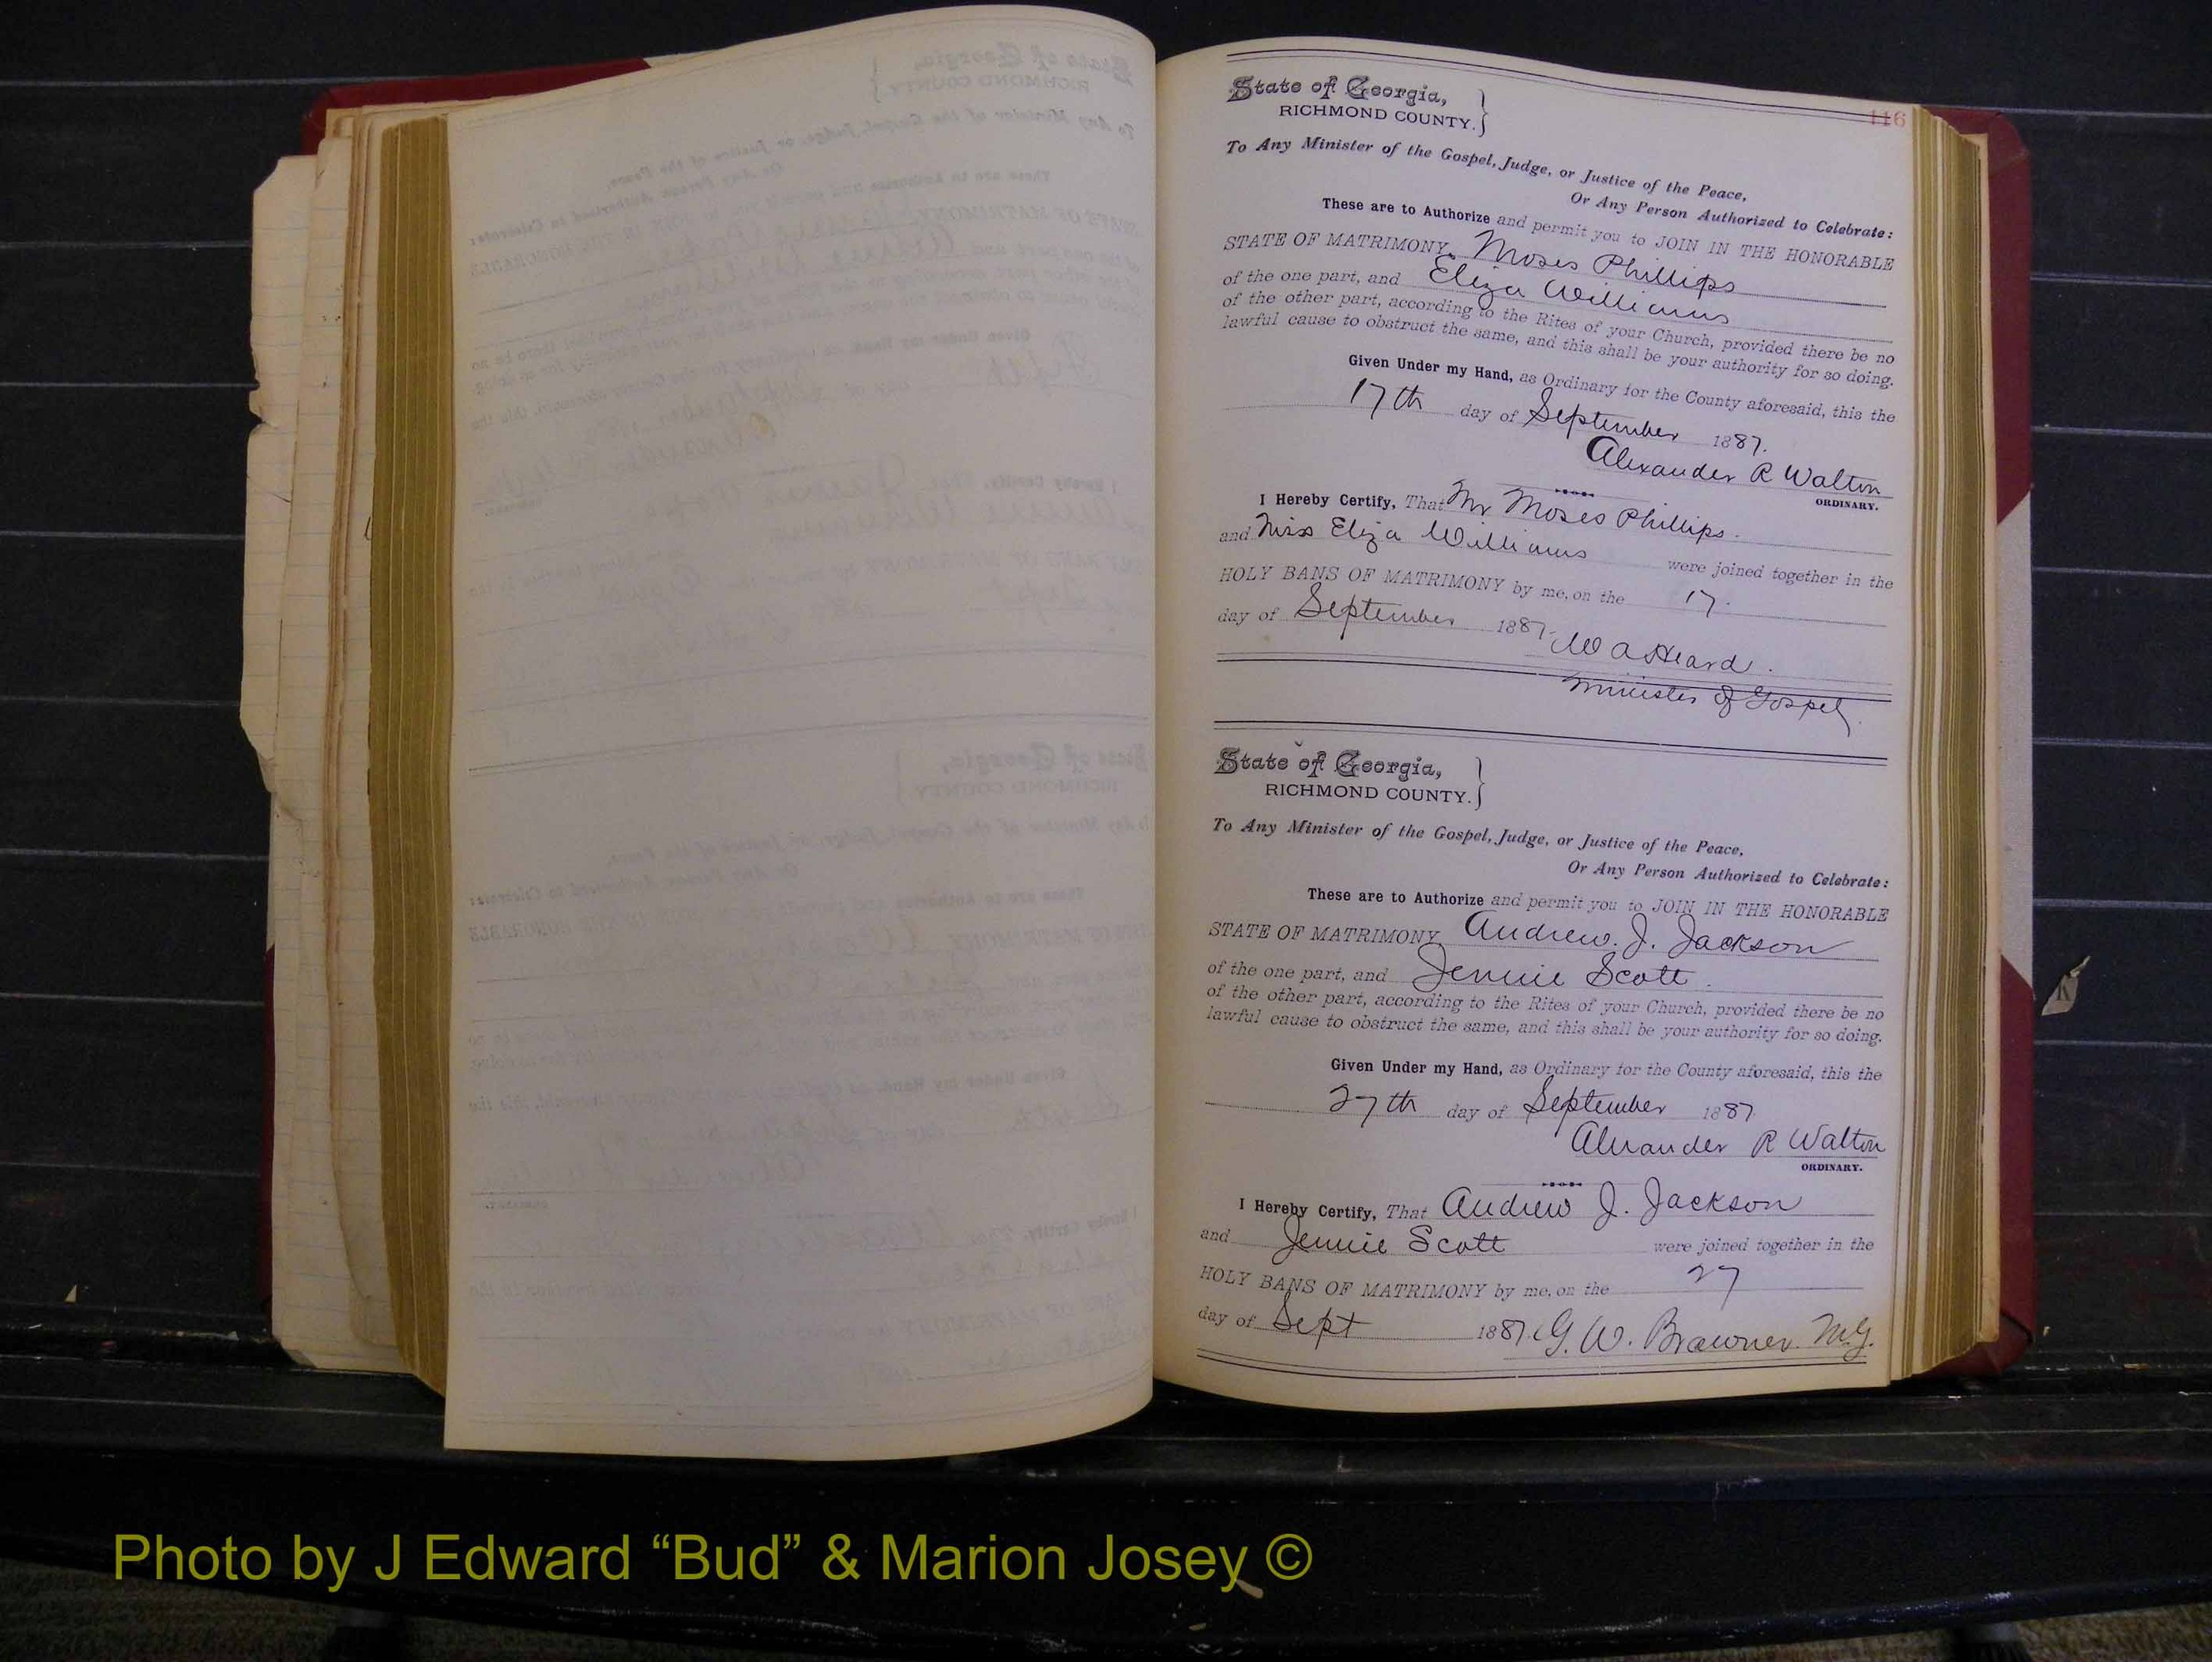 116
State of Georgia,
RICHMOND COUNTY.
To Any Minister of the Gospel, Judge, or Justice of the Peace,
Or Any Person Authorized to Celebrate:
These are to Authorize and permit you to JOIN IN THE HONORABLE
STATE OF MATRIMONY, Moses Phillips
of the one part, and Eliza Williams
of the other part, according to the Rites of your Church, provided there be no
lawful cause to obstruct the same, and this shall be your authority for so doing.
Given Under my Hand, as Ordinary for the County aforesaid, this the
17th day of September 1887.
Alexander R Walton
ORDINARY.
I Hereby Certify, That Mr Moses Phillips.
and Miss Eliza Williams were joined together in the
HOLY BANS OF MATRIMONY by me, on the 17.
day of September 1887.
W A Heard.
Minister of Gospel.
State of Georgia,
RICHMOND COUNTY.
To Any Minister of the Gospel, Judge, or Justice of the Peace,
Or Any Person Authorized to Celebrate:
These are to Authorize and permit you to JOIN IN THE HONORABLE
STATE OF MATRIMONY, Andrew. J. Jackson
of the one part, and Jennie Scott.
of the other part, according to the Rites of your Church, provided there be no
lawful cause to obstruct the same, and this shall be your authority for so doing.
Given Under my Hand, as Ordinary for the County aforesaid, this the
27th day of September 1887
Alexander R Walton
ORDINARY.
I Hereby Certify, That Andrew J. Jackson
and Jennie Scott were joined together in the
HOLY BANS OF MATRIMONY by me, on the 27
day of Sept 1887. G. W. Brawner. M.G.
Photo by J Edward “Bud” & Marion Josey ©